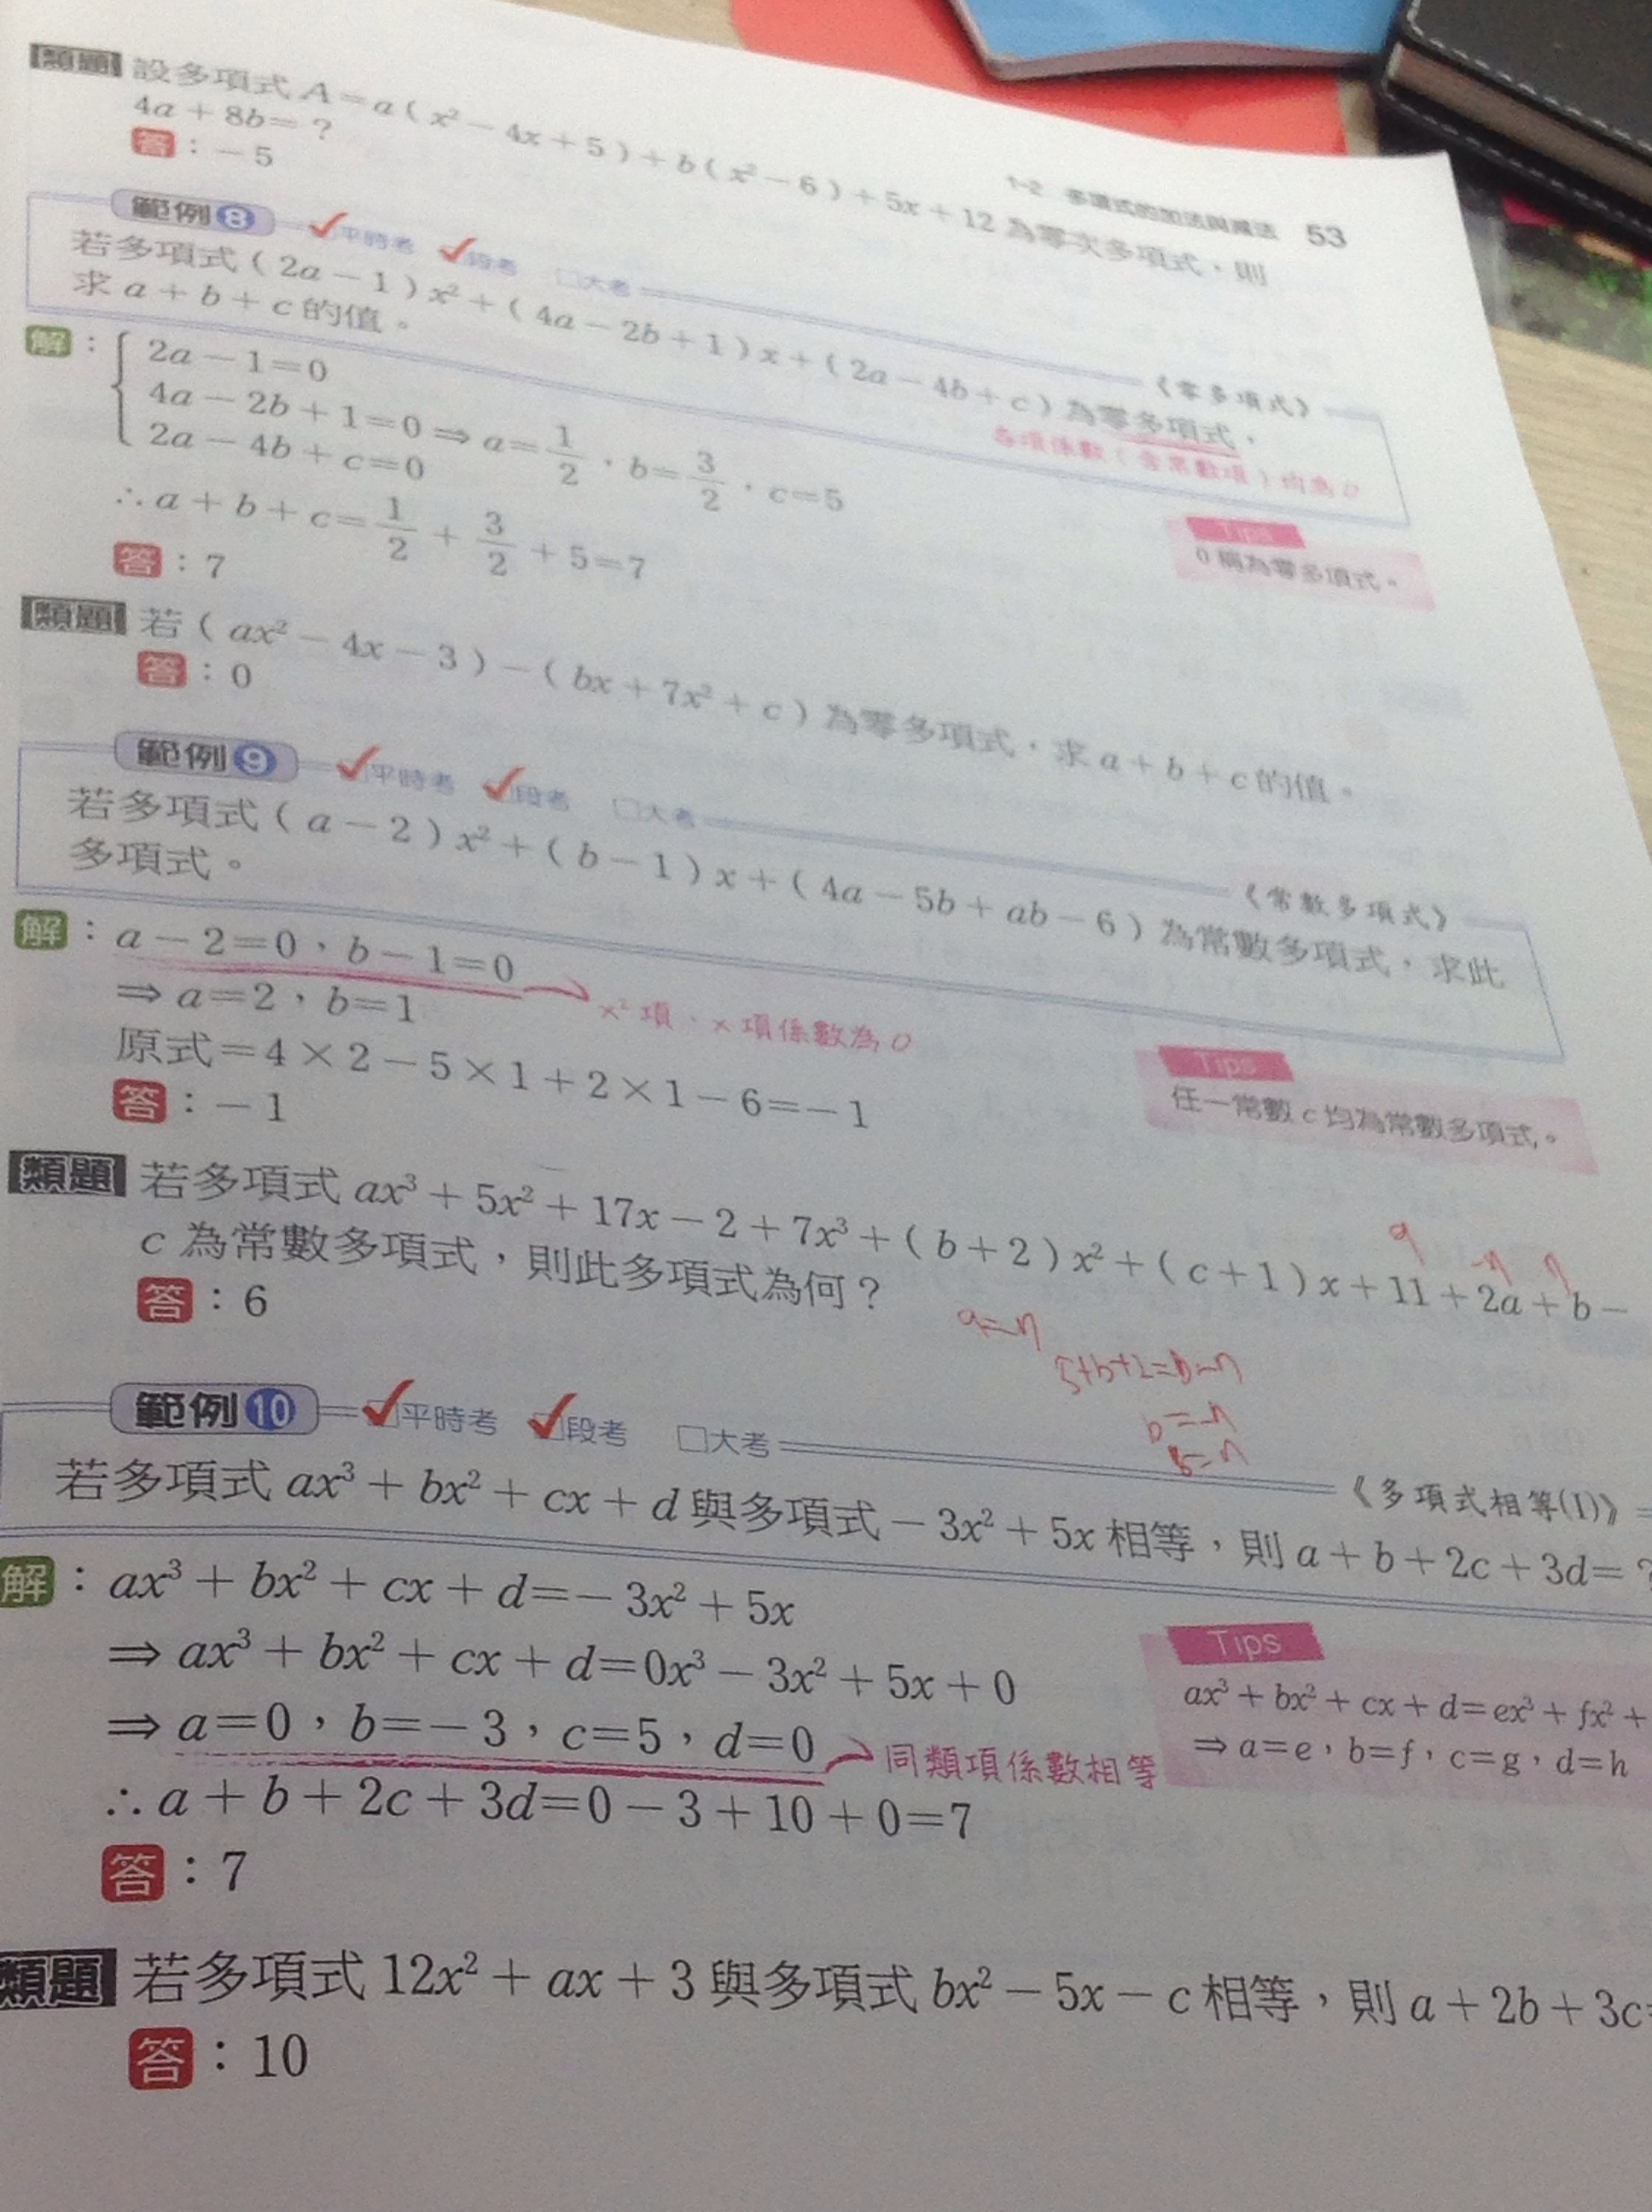 1-2 多項式的加法與減法 53
類題 設多項式 A＝a（x²－4x＋5）＋b（x²－6）＋5x＋12 為零次多項式，則
4a＋8b＝？
答：－5
範例8 平時考 段考 □大考 《零多項式》
若多項式（2a－1）x²＋（4a－2b＋1）x＋（2a－4b＋c）為零多項式，
求 a＋b＋c 的值。
各項係數（含常數項）均為0
解：2a－1＝0
4a－2b＋1＝0 ⇒ a＝1/2，b＝3/2，c＝5
2a－4b＋c＝0
∴a＋b＋c＝1/2＋3/2＋5＝7
Tips
0 稱為零多項式。
答：7
類題 若（ax²－4x－3）－（bx＋7x²＋c）為零多項式，求 a＋b＋c 的值。
答：0
範例9 平時考 段考 □大考 《常數多項式》
若多項式（a－2）x²＋（b－1）x＋（4a－5b＋ab－6）為常數多項式，求此
多項式。
解：a－2＝0，b－1＝0
x²項、x項係數為0
⇒a＝2，b＝1
原式＝4×2－5×1＋2×1－6＝－1
Tips
任一常數 c 均為常數多項式。
答：－1
類題 若多項式 ax³＋5x²＋17x－2＋7x³＋（b＋2）x²＋（c＋1）x＋11＋2a＋b－
c 為常數多項式，則此多項式為何？
答：6
範例10 平時考 段考 □大考 《多項式相等(1)》
若多項式 ax³＋bx²＋cx＋d 與多項式－3x²＋5x 相等，則 a＋b＋2c＋3d＝？
解：ax³＋bx²＋cx＋d＝－3x²＋5x
⇒ax³＋bx²＋cx＋d＝0x³－3x²＋5x＋0
⇒a＝0，b＝－3，c＝5，d＝0
同類項係數相等
∴a＋b＋2c＋3d＝0－3＋10＋0＝7
Tips
ax³＋bx²＋cx＋d＝ex³＋fx²＋
⇒a＝e，b＝f，c＝g，d＝h
答：7
類題 若多項式 12x²＋ax＋3 與多項式 bx²－5x－c 相等，則 a＋2b＋3c
答：10